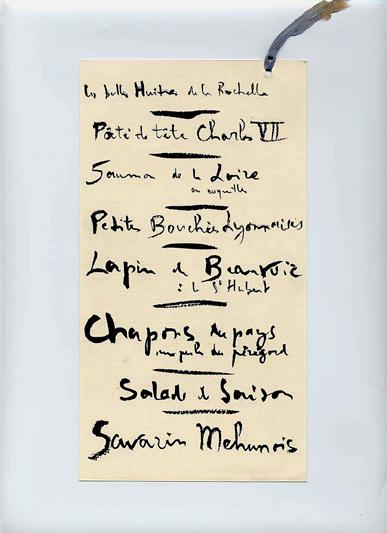 Les belles Huitres de la Rochelle
Pâté de tête Charles VII
Saumon de la Loire
en coquilles
Petites Bouchées Lyonnaises
Lapin de Beauvoir
à la St Hubert
Chapons du pays
aux perles du périgord
Salade de Saison
Savarin Mehunois